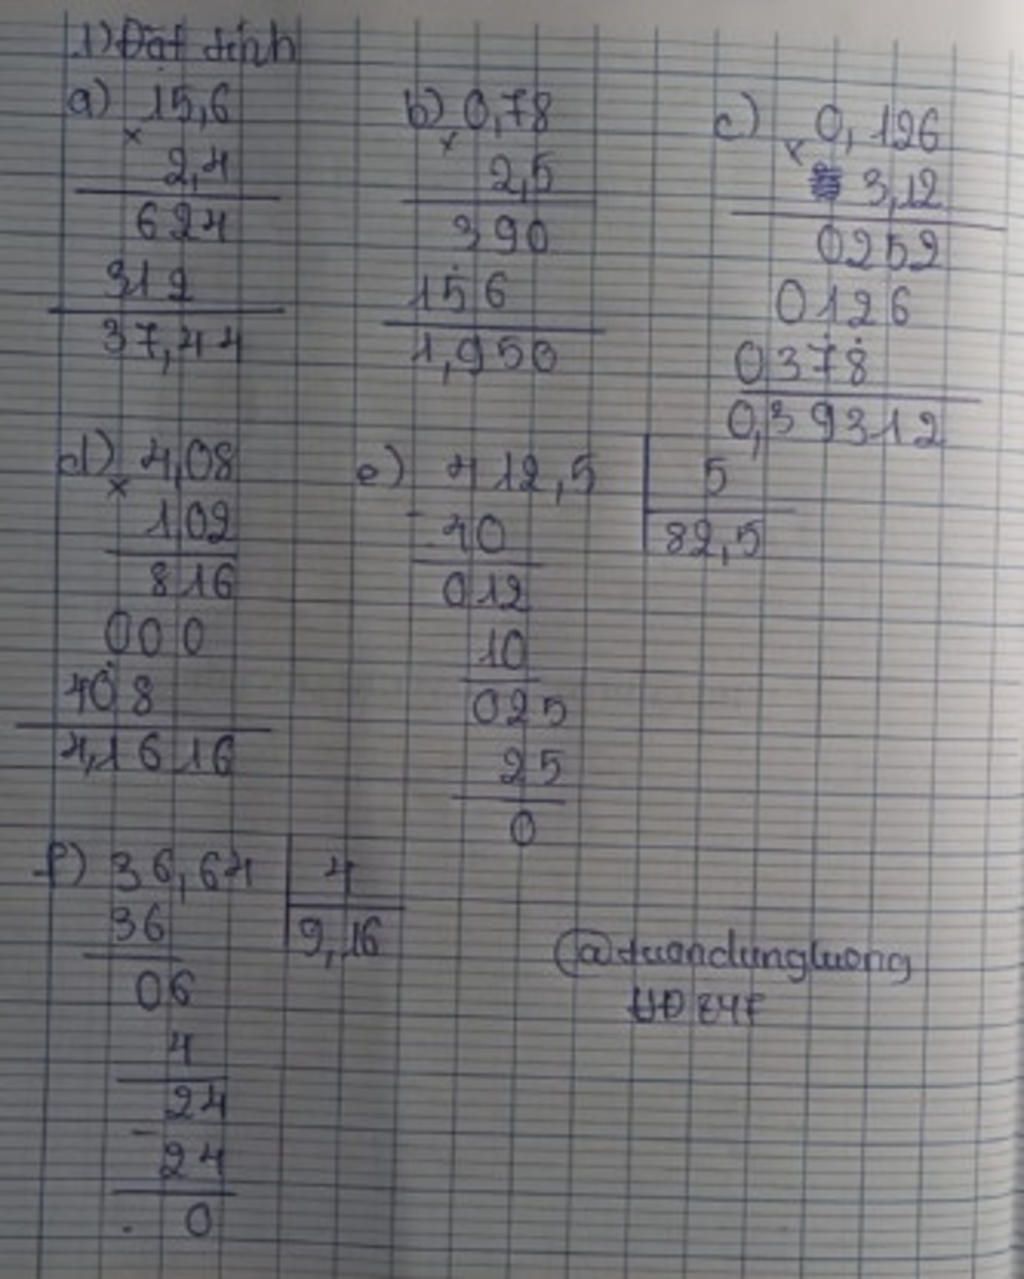 1) Đặt tính
a) 15,6
×
2,4
624
312
37,44
b) 0,78
×
2,5
390
156
1,950
c) 0,126
×
3,12
0252
0126
0378
0,39312
d) 4,08
×
102
816
000
408
4,1616
e) 412,5 5
- 40 82,5
012
10
025
25
0
f) 36,64 4
36 9,16
06
4
24
- 24
0
@tuandungluong